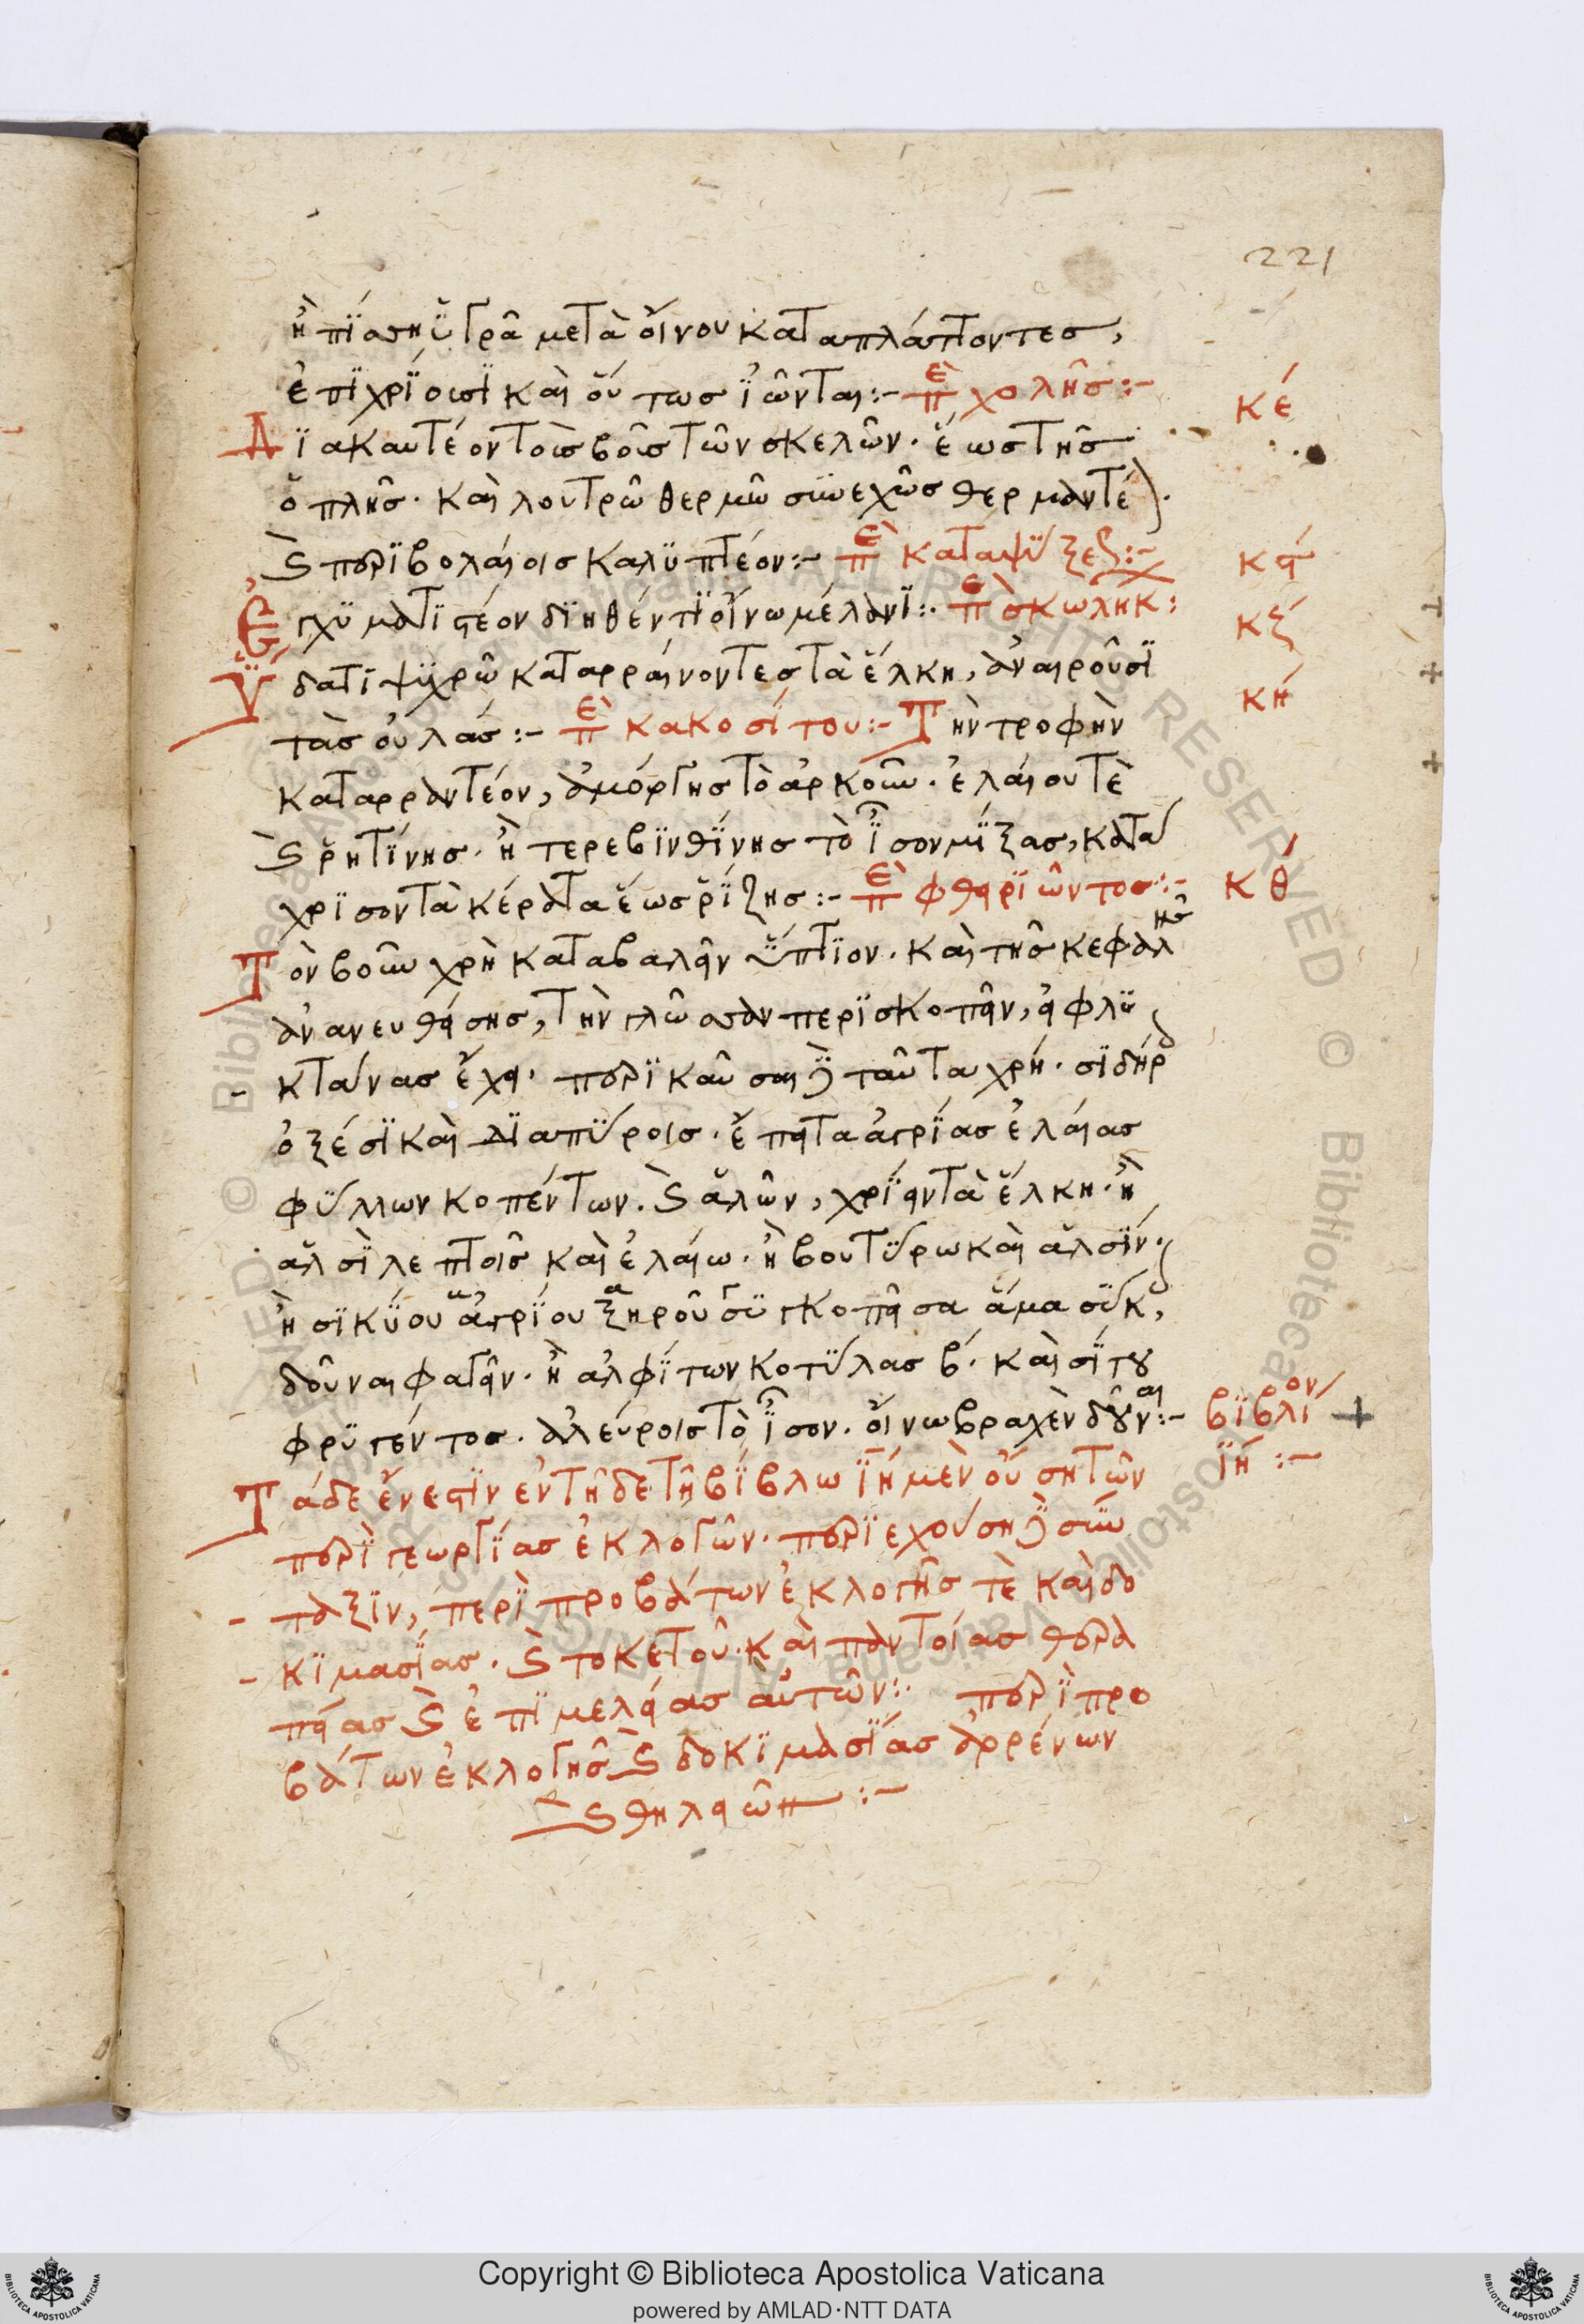 221
ἢ πίσση ὑγρᾶ μετὰ οἴνου καταπλάττοντες,
ἐπιχρίουσϊ καὶ οὕτως ἰῶνται:- ἐπὶ χολῆς:- κέ
Διακαυτέον τοῖς βοῦς τῶν σκελῶν. ἕως τῆς
ὁπλῆς. καὶ λουτρῶ θερμῶ συνεχῶς θερμαντέον.
καὶ περιβολαίοις καλυπτέον:- ἐπὶ καταψύξεως:- κϛ
Ἐγχυματιστέον διηθέντι οἴνω μέλανι:. ἐπὶ σκωλήκ: κζ
Ὕδατι ψυχρῶ καταρραίνοντες τὰ ἕλκη, ἀναιροῦσϊ
τὰς οὐλάς:- ἐπὶ κακοσίτου:- Τὴν τροφὴν κή
καταρραντέον, ἀμόργης τὸ ἀρκοῦν. ἐλαίου τὲ
καὶ ῥητίνης. ἢ τερεβινθίνης τὸ ἴσον μίξας, κατα
χρισον τὰ κέρατα ἕως ῥίζης:- ἐπὶ φθειριῶντος:- κθ
Τὸν βοῦν χρὴ καταβαλεῖν ὕπτιον. καὶ τῆς κεφαλῆς
ἀνανευθείσης, τὴν γλῶσσαν περισκοπεῖν, εἰ φλυ
κταίνας ἔχει. περικαῦσαι δὲ ταῦτα χρή. σιδήροις
ὀξέσϊ καὶ διαπύροις. ἔπειτα ἀγρίας ἐλαίας
φύλλων κοπέντων. καὶ ἁλῶν, χρίειν τὰ ἕλκη. ἢ
ἁλσὶ λεπτοῖς καὶ ἐλαίω. ἢ βουτύρω καὶ ἁλσίν.
ἢ σικύου ἀγρίου ξηροῦ συγκοπεῖσα ἅμα σύκοις,
δοῦναι φαγεῖν. ἢ ἀλφίτων κοτύλας β. καὶ σίτου
φρυγέντος. ἀλεύροις τὸ ἴσον. οἴνω βραχὲν δοῦναι:- βιβλίον
Τάδε ἔνεστιν ἐν τῆδε τῆ βίβλω ιή μὲν οὔση τῶν ιή:-
περὶ γεωργίας ἐκλογῶν. περιεχούση δὲ σύν
ταξιν, περὶ προβάτων ἐκλογῆς τὲ καὶ δο
κιμασίας. καὶ τοκετοῦ. καὶ παντοίας θερα
πείας καὶ ἐπιμελείας αὐτῶν:. περὶ προ
βάτων ἐκλογῆς καὶ δοκιμασίας ἀρρένων
καὶ θηλειῶν:-
Copyright © Biblioteca Apostolica Vaticana
powered by AMLAD·NTT DATA